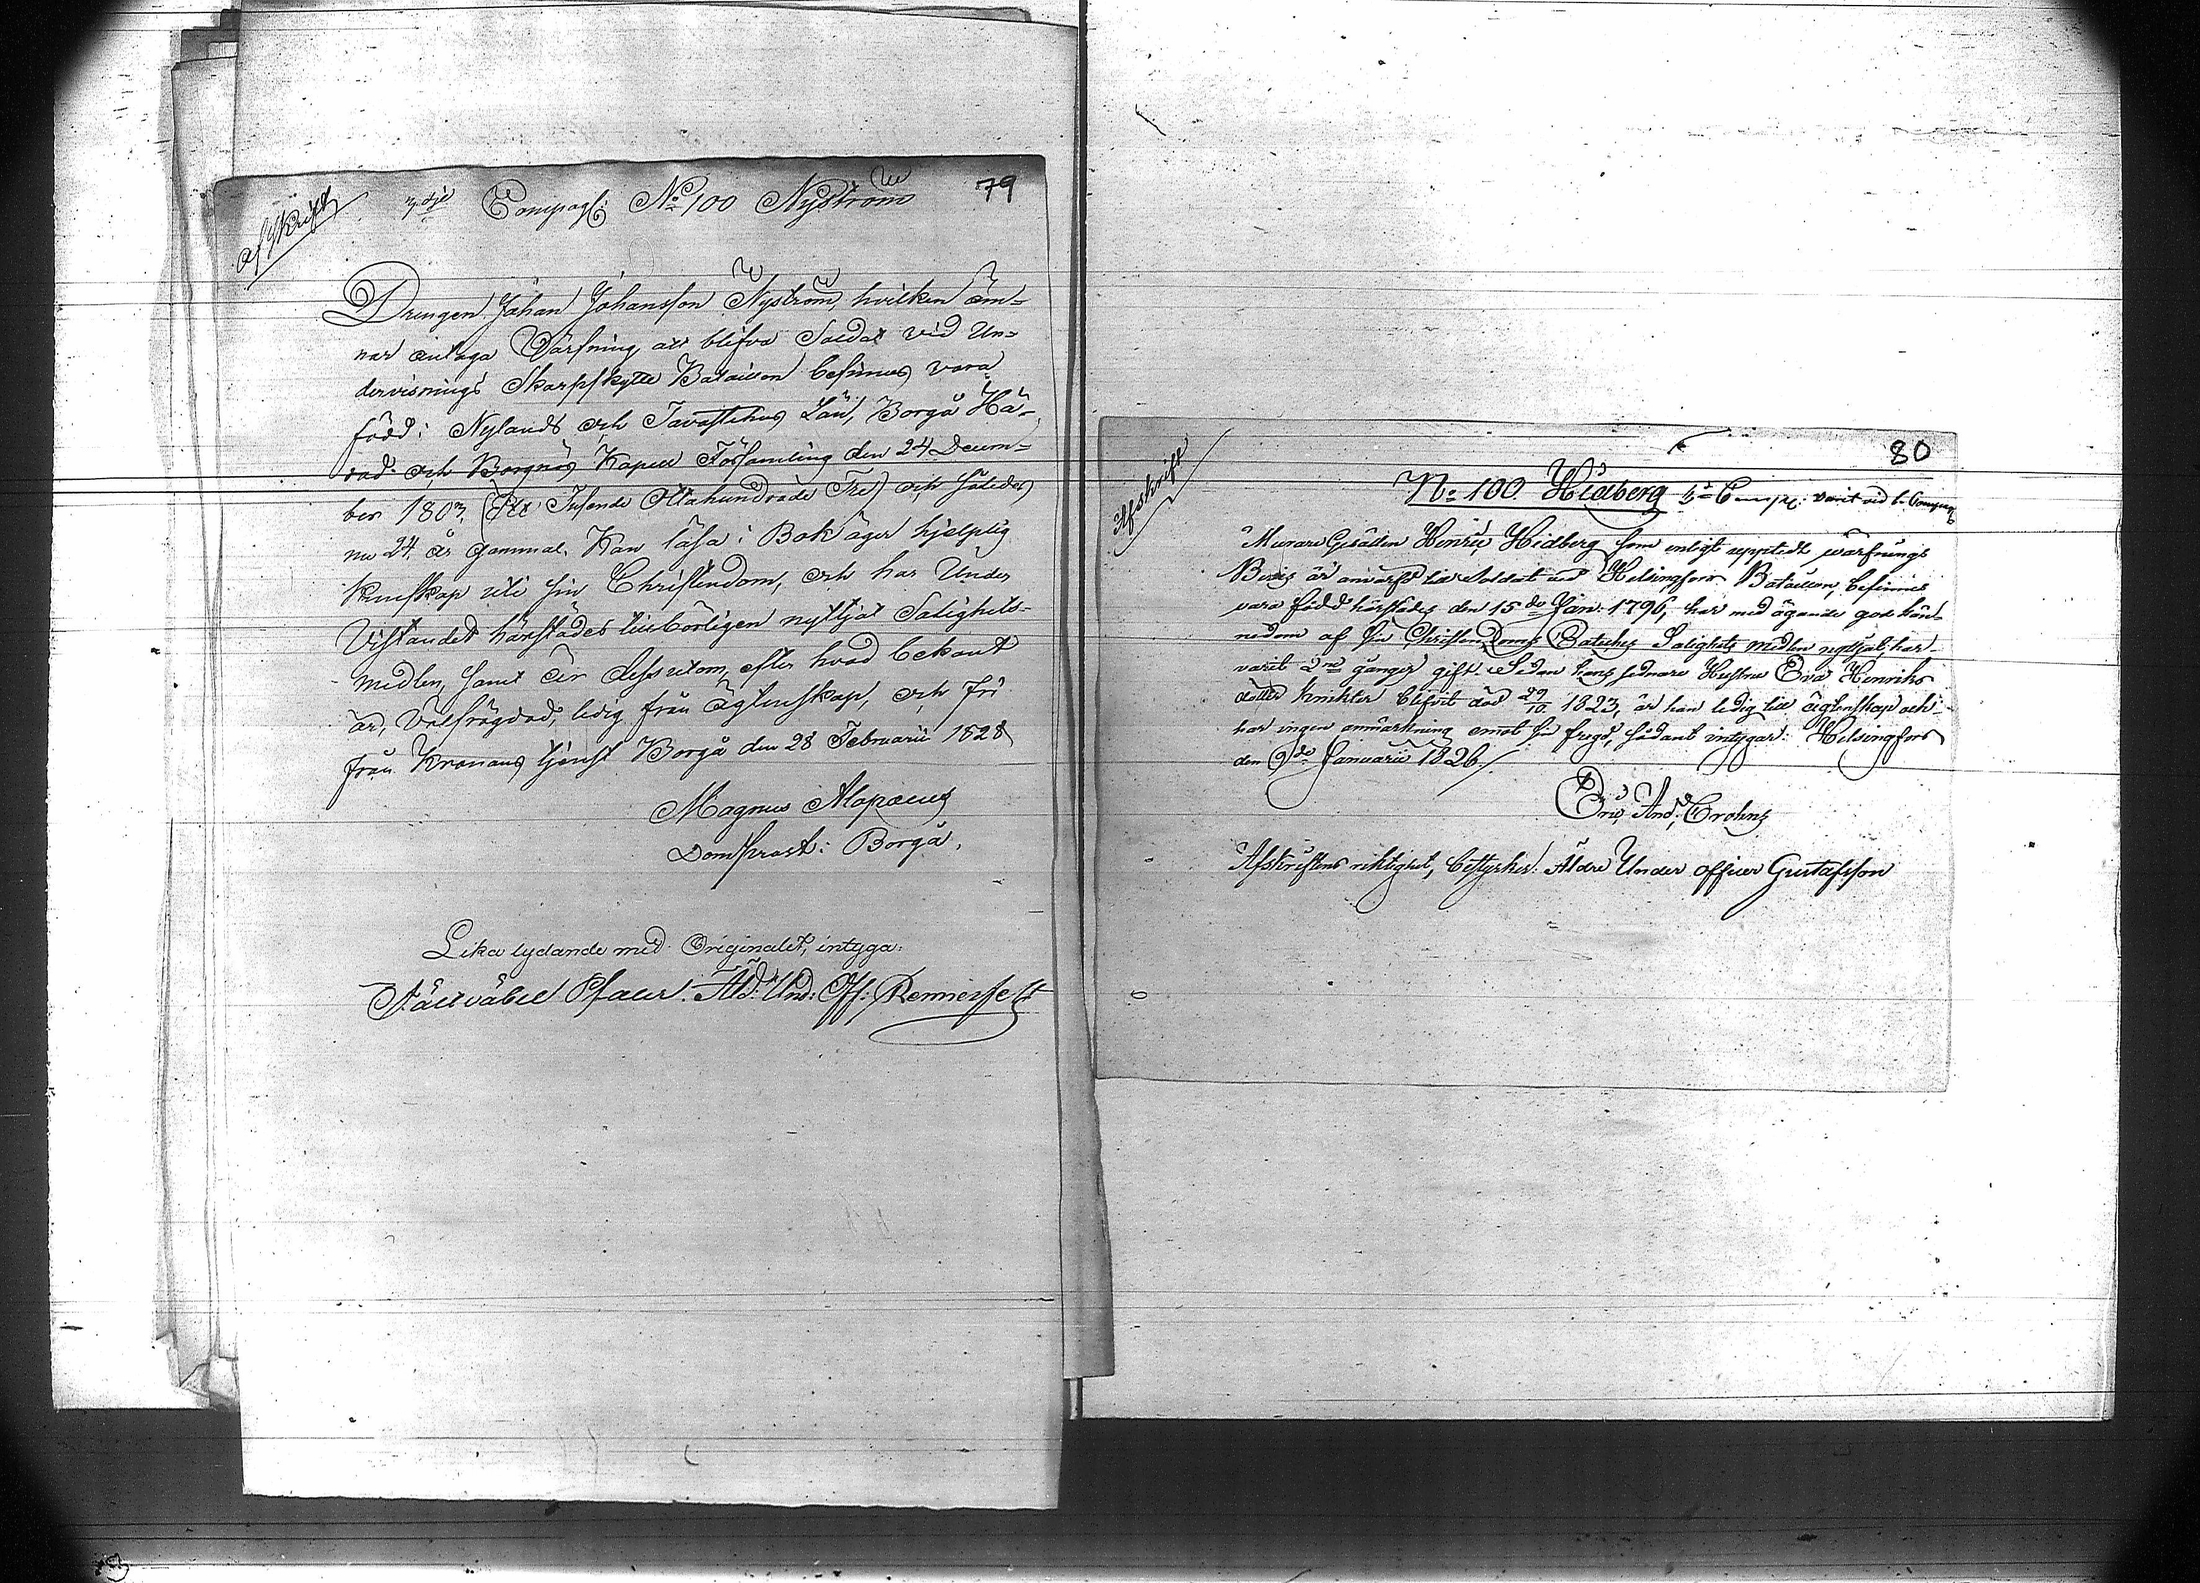 Afskrift
3dje Compagt: No 100 Nyström
79
Drengen Johan Johansson Nyström, hvilken äm-
nar antaga Värfning att blifva Soldat vid Un-
dervisnings Skarpskytte Bataillon befinnes vara
född i Nylands och Tavastehus Län, Borgå Hä-
rad och Borgnäs Kapell Församling den 24 Decem-
ber 1803, (Ett Tusende Ottahundrade Tre) och således
nu 24 år gammal. Kan läsa i Bok äger hjelplig
kunskap uti sin Christendom, och har Under
Vistandet härstädes tillbörligen nyttjat Salighets-
medlen, samt är dessutom, efter hvad bekant
är, Välfrägdad, ledig från Ägtenskap, och fri
från Kronans tjenst Borgå den 28 Februarii 1828
Magnus Alopaeus
Domprost i Borgå.
Lika lydande med Originalet, intyga:
Fältväbel Pfaler. Äld: Und: Off: Rennerfelt
Afskrift
80
No 100 Hidberg Compt: varit vid 1. Compagt
Murare Gesällen Henric Hidberg som enligt upptedt värfnings
Bevis är anvärfd till Soldat vid Helsingfors Bataillon, befinnes
vara född härstädes den 15de Jan: 1796, har med ägande god kän-
nedom af sin Christendoms Salighets medlen nyttjat, har
varit 2ne gånger gift. Sedan hans sednare Hustru Eva Henriks
dotter blifvit död 29/10 1823, är han ledig till ägtenskap och
har ingen anmärkning emot sin fregd, sådant intygar: Helsingfors
den 9de Januarii 1826.
Eric And: Crohns
Afskriftens riktighet, bestyrker: Äldre Under officer Gustafsson